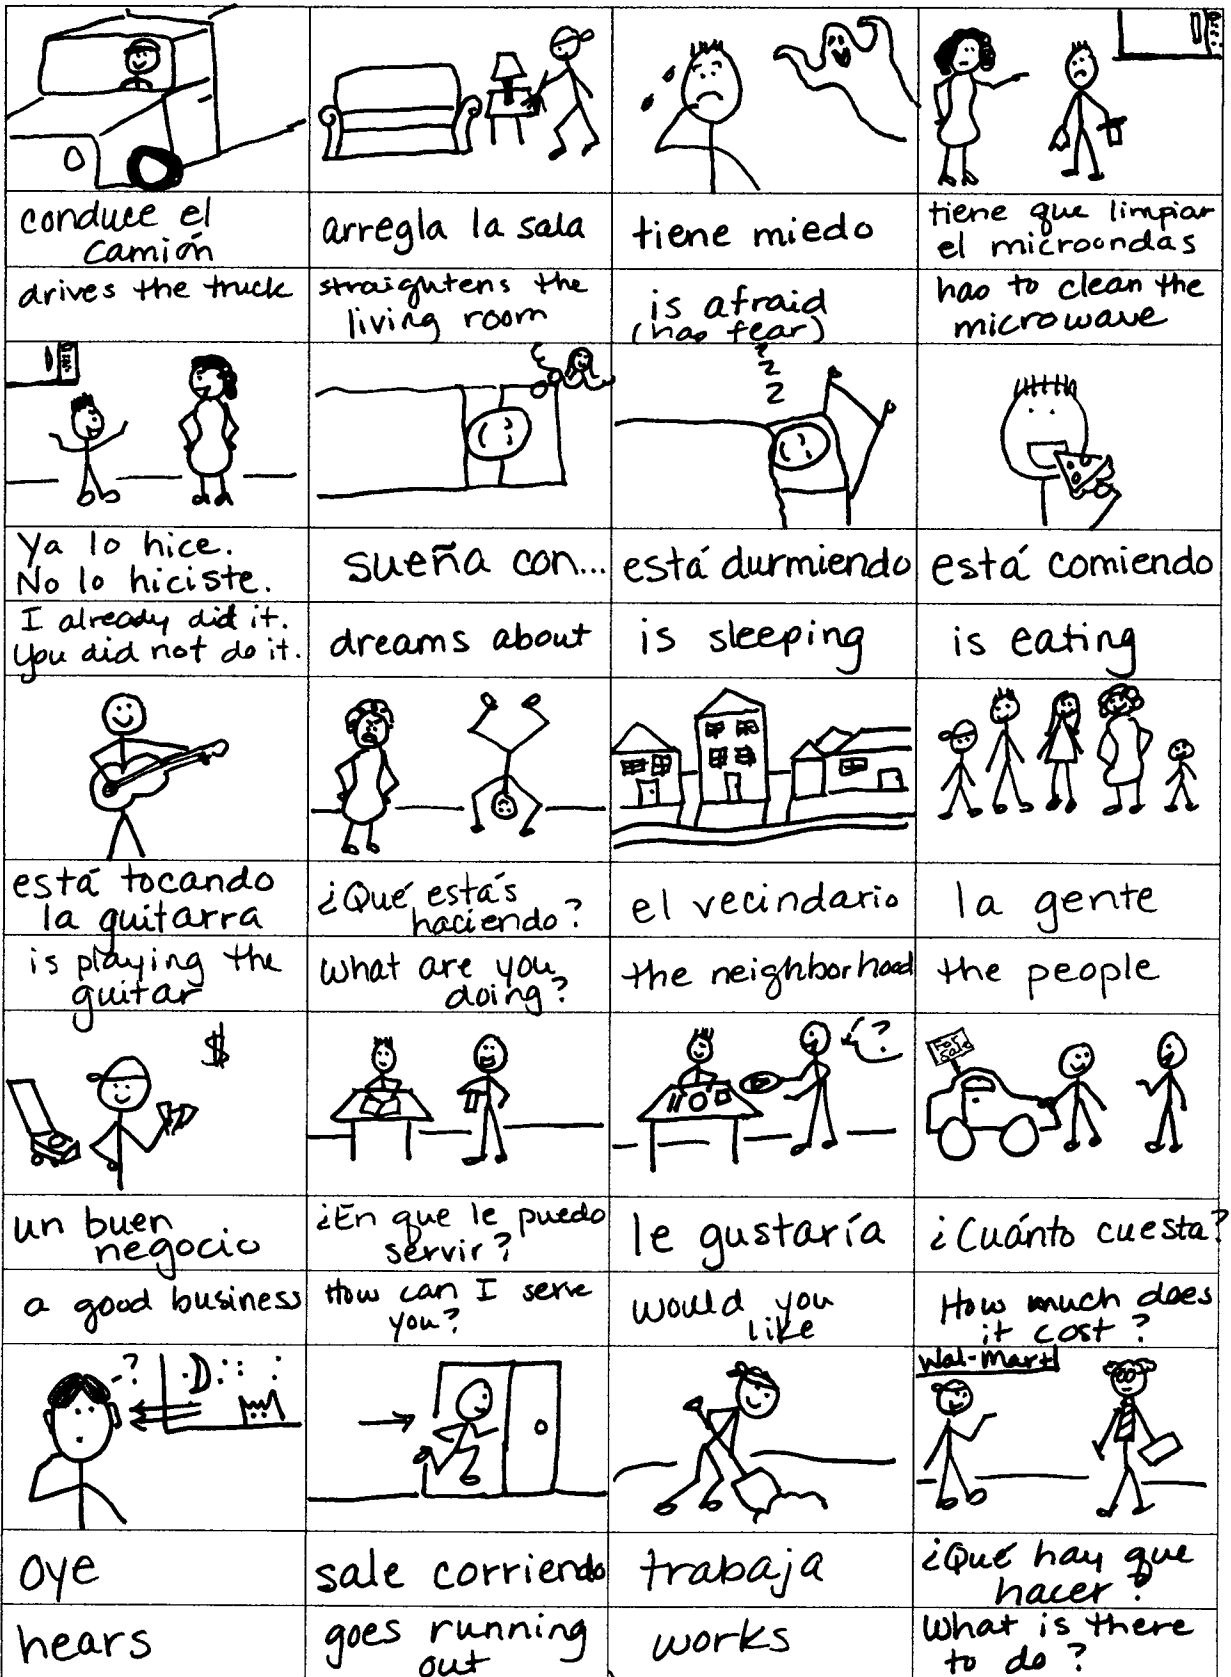 conduce el
camión
arregla la sala
tiene miedo
tiene que limpiar
el microondas
drives the truck
straightens the
living room
is afraid
(has fear)
has to clean the
microwave
z
z
z
Ya lo hice.
No lo hiciste.
sueña con...
está durmiendo
está comiendo
I already did it.
You did not do it.
dreams about
is sleeping
is eating
está tocando
la guitarra
¿Qué estás
haciendo?
el vecindario
la gente
is playing the
guitar
What are you
doing?
the neighborhood
the people
$
?
For
Sale
un buen
negocio
¿En que le puedo
servir?
le gustaría
¿Cuánto cuesta?
a good business
How can I serve
you?
would you
like
How much does
it cost?
?
Wal-Mart
oye
sale corriendo
trabaja
¿Qué hay que
hacer?
hears
goes running
out
works
What is there
to do?